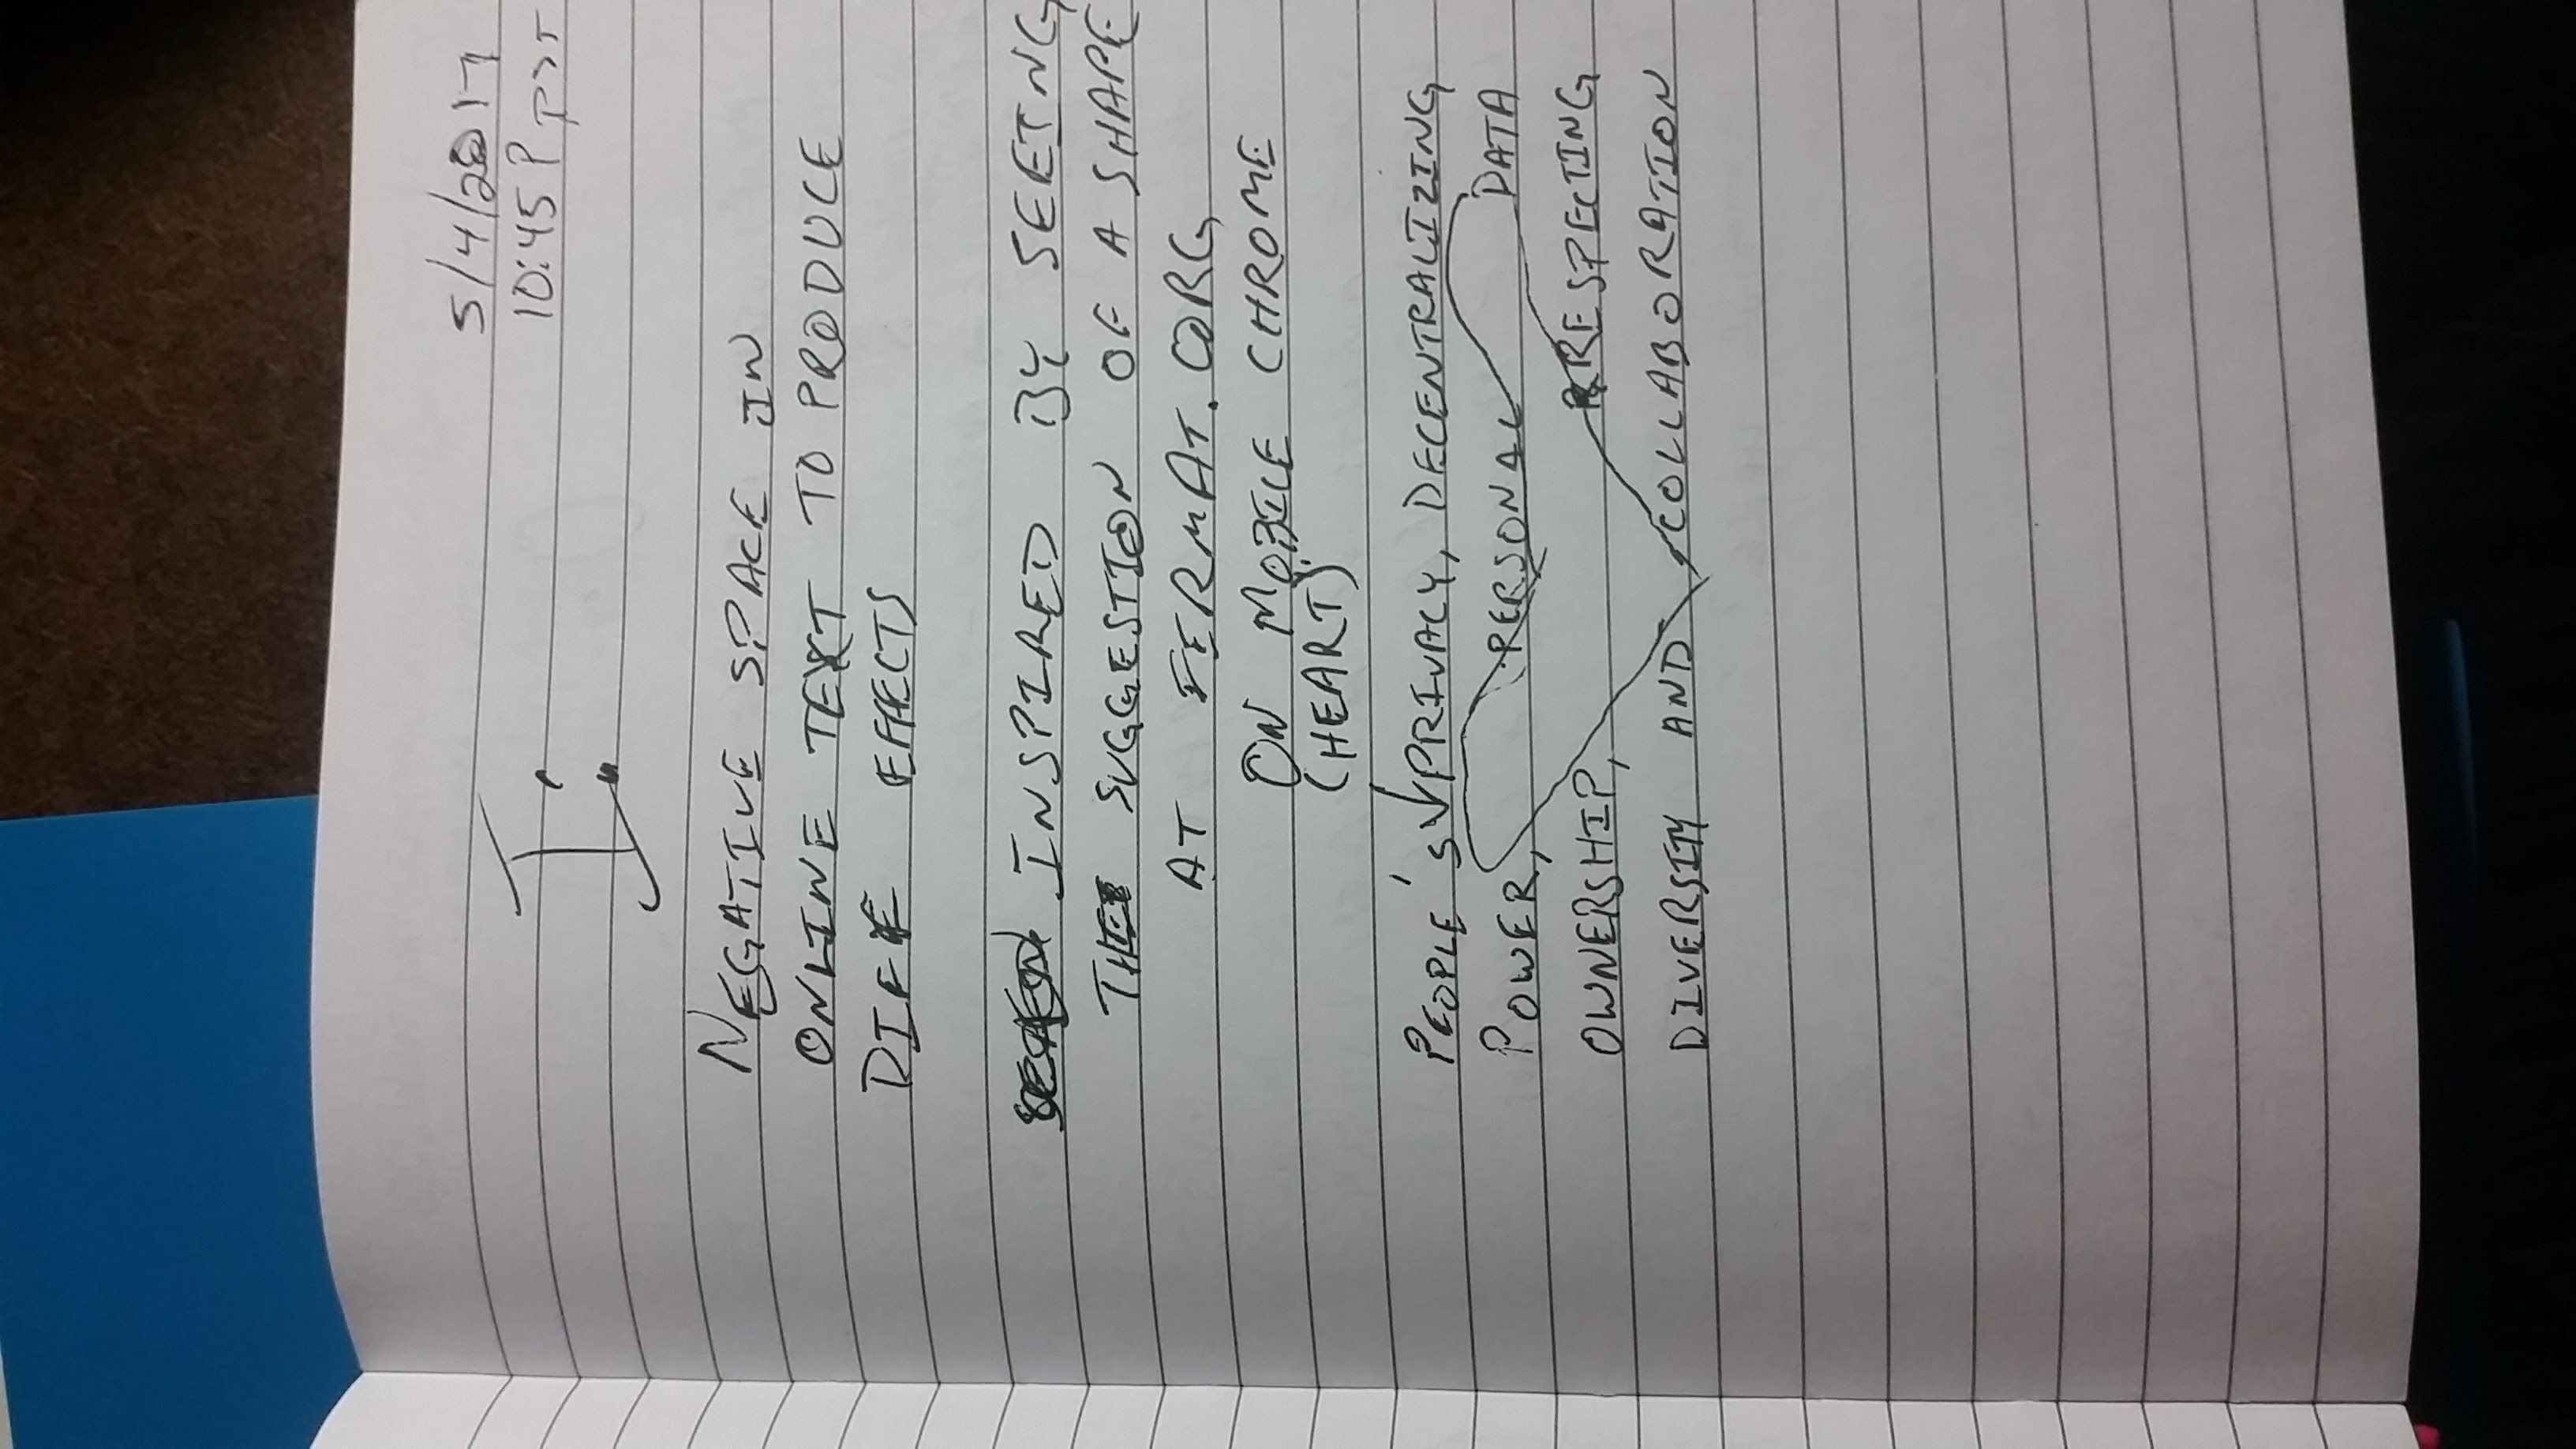 5/4/2017
10:45 P PDT
I:
NEGATIVE SPACE IN
ONLINE TEXT TO PRODUCE
DIFF EFFECTS
INSPIRED BY SEEING
THE SUGGESTION OF A SHAPE
AT FERMAT.ORG
ON MOBILE CHROME
(HEART)
PEOPLE'S PRIVACY, DECENTRALIZING
POWER, PERSONAL DATA
OWNERSHIP, RESPECTING
DIVERSITY AND COLLABORATION